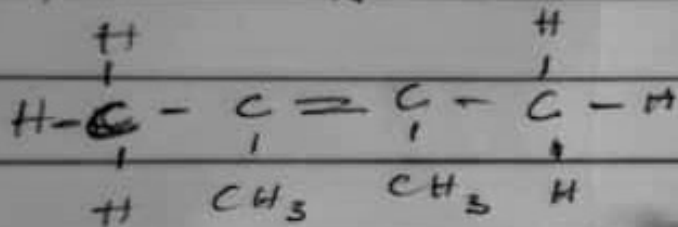 H H
H-C - C = C - C - H
H CH3 CH3 H